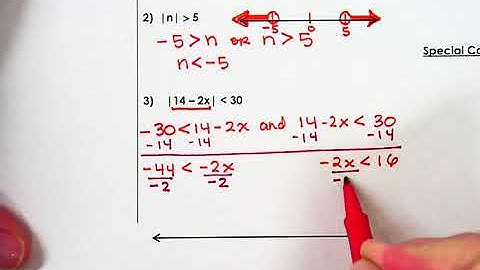 2) |n| > 5
-5 0 5
-5 > n or n > 5
n < -5
Special Ca
3) |14 – 2x| < 30
-30 < 14 - 2x and 14 - 2x < 30
-14 -14 -14 -14
-44 < -2x -2x < 16
-2 -2 -